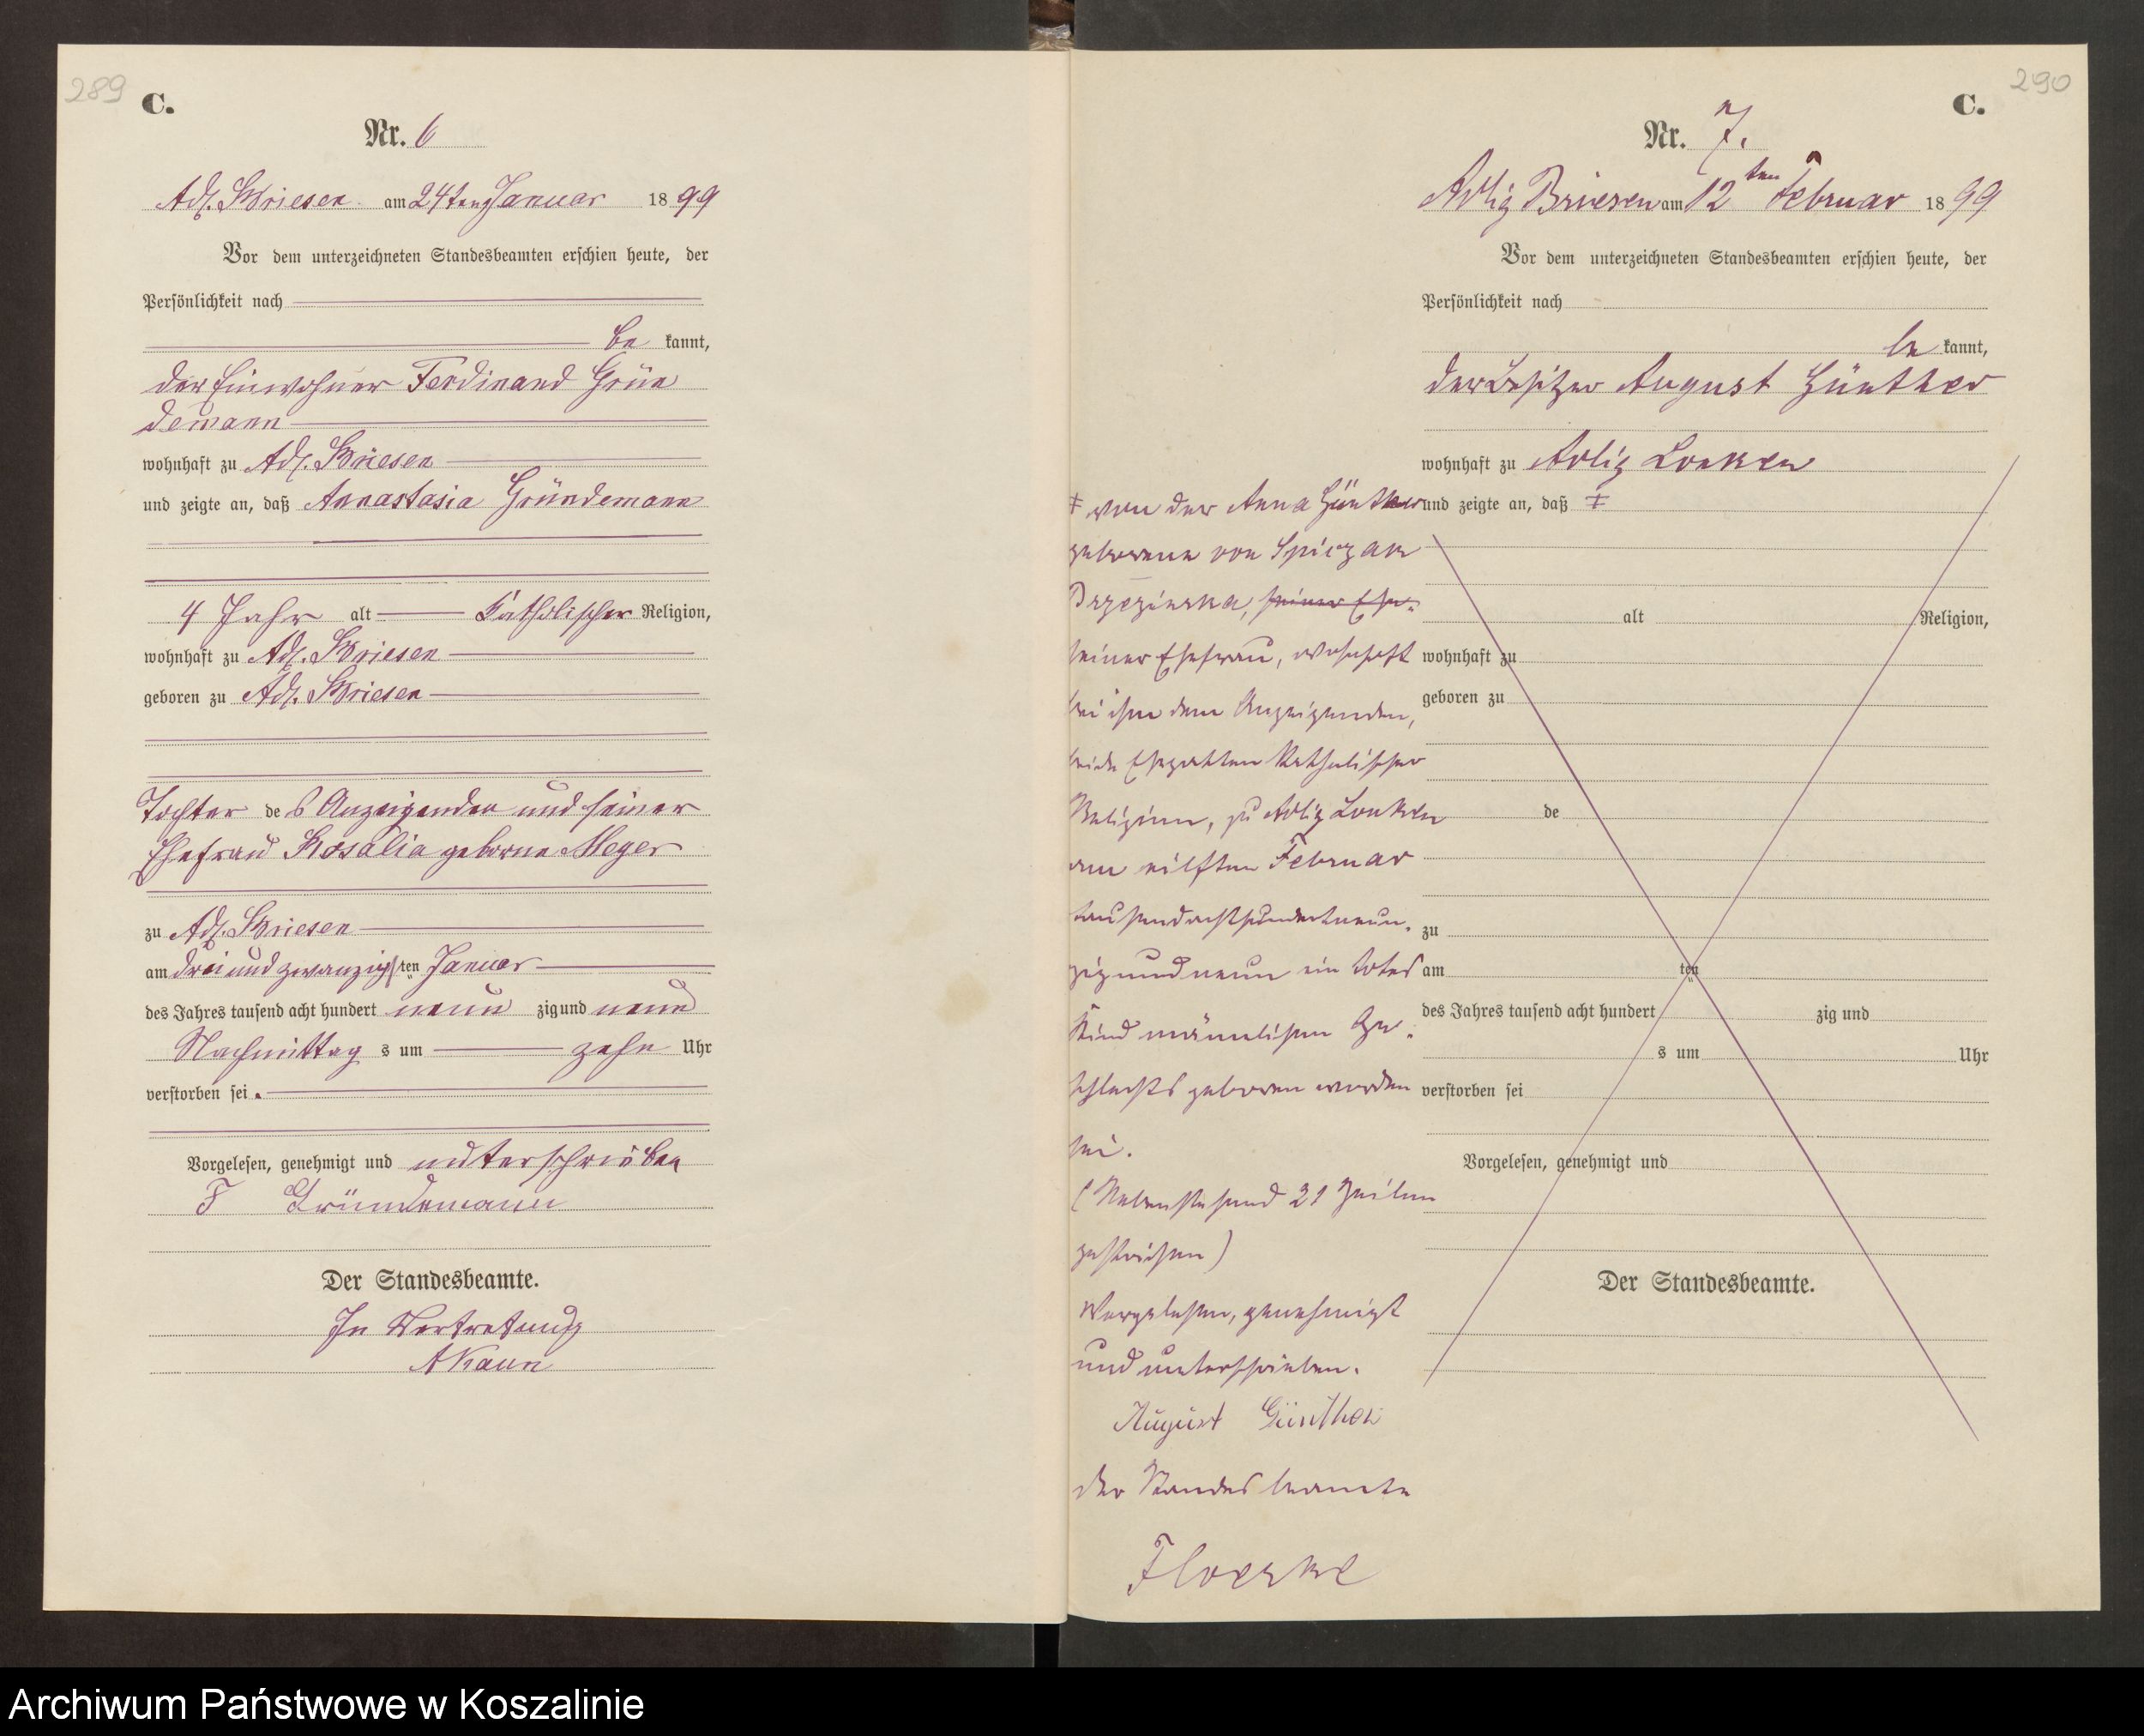 289
C.
Nr. 6
Adl. Briesen am 24ten Januar 1899
Vor dem unterzeichneten Standesbeamten erschien heute, der
Persönlichkeit nach
be kannt,
der Einwohner Ferdinand Grün
demann
wohnhaft zu Adl. Briesen
und zeigte an, daß Annastasia Gründemann
4 Jahr alt Katholischer Religion,
wohnhaft zu Adl. Briesen
geboren zu Adl. Briesen
Tochter des Anzeigenden und seiner
Ehefrau Rosalia geborne Meyer
zu Adl. Briesen
am drei und zwanzigsten Januar
des Jahres tausend acht hundert neun zig und neun
Nachmittag s um zehn Uhr
verstorben sei.
Vorgelesen, genehmigt und unterschrieben
F Gründemann
Der Standesbeamte.
In Vertretung
AKaun
290
C.
Nr. 7.
Adlig Briesen am 12ten Februar 1899
Vor dem unterzeichneten Standesbeamten erschien heute, der
Persönlichkeit nach
be kannt,
der Besitzer August Günther
wohnhaft zu Adlig Lonken
und zeigte an, daß ‡
‡ von der Anna Günther
geborene von Spiczak
Brzezinska, seiner Ehe-
seiner Ehefrau, wohnhaft
bei ihm dem Anzeigenden,
beide Ehegatten Katholischer
Religion, zu Adlig Lonken
am eilften Februar
tausendachthundertneun-
zigundneun ein totes
Kind männlichen Ge-
schlechts geboren worden
sei.
(Nebenstehend 21 Zeilen
gestrichen)
Vorgelesen, genehmigt
und unterschrieben.
August Günther
Der Standesbeamte
Floerke
alt Religion,
wohnhaft zu
geboren zu
de
zu
am ten
des Jahres tausend acht hundert zig und
s um Uhr
verstorben sei
Vorgelesen, genehmigt und
Der Standesbeamte.
Archiwum Państwowe w Koszalinie